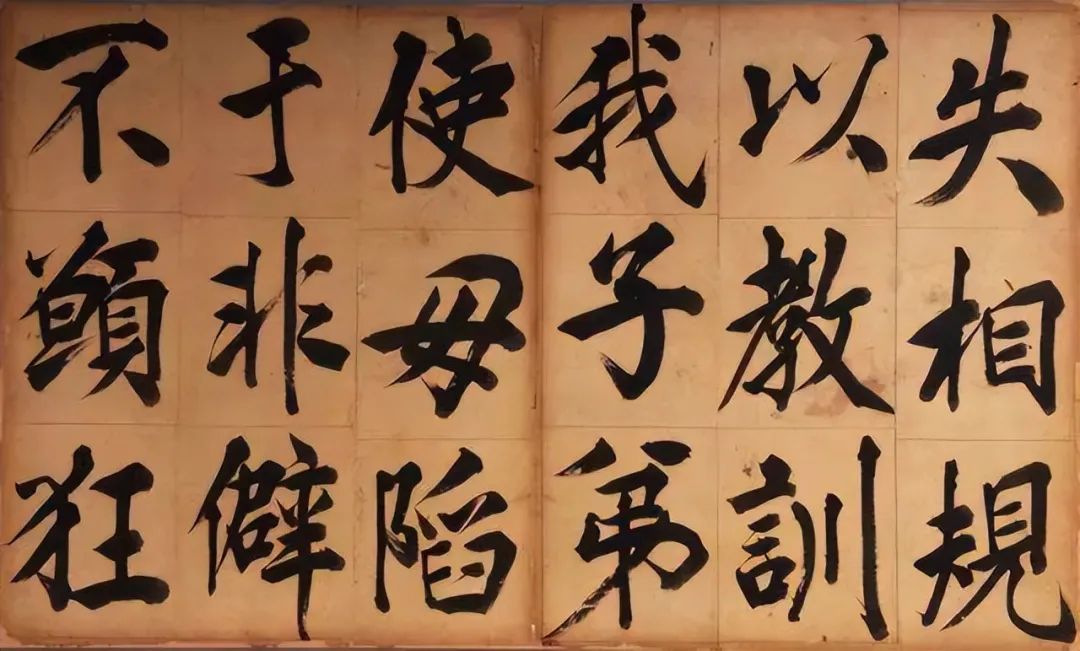 失相規
以教訓
我子弟
使毋陷
于非僻
不顗狂